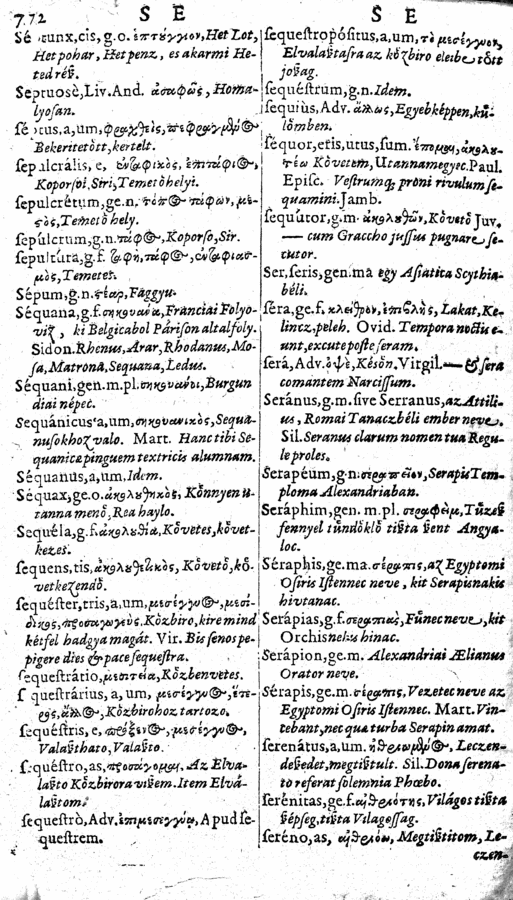 772 S E S E
Sé unx,cis, g.o. ἑπτούγγιον, Het Lot,
Het pohar, Het penz, es akarmi He-
ted rév̋.
Septuosè, Liv. And. ἀσαφῶς, Homa-
lyosan.
sé tus, a, um, φραχθεὶς,
Bekeritetött, kertelt.
sepulcrális, e, ἐπιτάφι,
Koporsoi, Siri, Temetö helyi.
sepulcrétum, ge.n.
Temetö hely.
sepúlcrum, g.n. Koporso, Sir.
sepultúra, g.f. ταφὴ,
μὸς, Temetes.
Sépum, g.n. στέαρ, Faggyu.
Séquana, g.f. σηκουάνα, Franciai Folyo-
viz, ki Belgicabol Párison altal foly.
Sidon. Rhenus, Arar, Rhodanus, Mo-
sa, Matrona, Sequana, Ledus.
Séquani, gen. m. pl. σηκουανοι, Burgun
diai népec.
Sequánicus, a, um, σηκουανικὸς, Sequá-
nusokhoz valo. Mart. Hanc tibi Se-
quanicæ pinguem textricis alumnam.
Séquanus, a, um, Idem.
Séquax, ge.o. ἀκολουθητικὸς, Könnyen u-
tanna menö, Rea haylo.
Sequéla, g.f. ἀκολουθία, Követes, követ-
kezes.
sequens, tis, ἀκολουθητικὸς, Követö, kö-
vetkezendö.
sequéster, tris, a, um,
Közbiro, kire mind
két fel hadgya magát. Vir. Bis senos pe-
pigere dies & pace sequestra.
sequestrátio, μεσιτεία, Közbenvetes.
s questrárius, a, um,
Közbirohoz tartozo.
sequéstris, e,
sequéstro, as, Az Elva-
lasto Közbirora viszem. Item Elvá-
lasztom.
sequestrò, Adv. Apud se-
questrem.
sequestropósitus, a, um,
az közbiro eleibe tött
joszag.
sequéstrum, g.n. Idem.
sequiùs, Adv. ἄλλως, Egyebképpen, kü-
lömben.
séquor, eris, utus, sum. ἕπομαι,
Követem, Utannamegyec. Paul.
Episc. Vestrumq; proni rivulum se-
quamini. Jamb.
sequutor, g.m. ἀκολουθῶν, Követö Juv.
— cum Graccho jussus pugnare se-
cutor.
Ser, seris, gen. ma egy Asiatica Scythia-
béli.
sera, ge.f. κλεῖθρον, Lakat, Ke-
lincz, peleh. Ovid. Tempora noctis e-
unt, excute poste seram.
serâ, Adv. ὀψὲ, Késön. Virgil. — & sera
comantem Narcissum.
Seránus, g.m. sive Serranus, az Attili-
us, Romai Tanaczbéli ember neve.
Sil. Seranus clarum nomen tua Regu-
le proles.
Serapéum, g.n. σεραπεῖον, Serapis Tem-
ploma Alexandriaban.
Seráphim, gen. m. pl. σεραφὶμ, Tüzes
fennyel tündöklö tiszta szent Angya-
loc.
Séraphis, ge.ma. σέραπις, az Egyptomi
Osiris Istennec neve, kit Serapisnakis
hivtanac.
Serápias, g.f. σεραπιὰς, Fünec neve, kit
Orchisnekis hinac.
Serápion, ge.m. Alexandriai Ælianus
Orator neve.
Sérapis, ge.m. σέραπις, Vezetec neve az
Egyptomi Osiris Istennec. Mart. Vin-
cebant, nec qua turba Serapin amat.
serenátus, a, um. Leczen-
deszedet, megtisztult. Sil. Dona serena-
to referat solemnia Phœbo.
serénitas, ge.f. αἰθριότης, Világos tiszta
szépseg, tiszta Vilagossag.
seréno, as, Megtisztitom, Le-
czen-